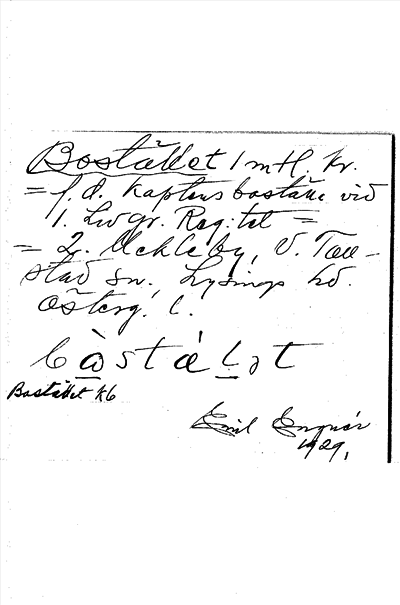 Bostället 1 mtl kr.
= f.d. Kaptensboställe vid
1. Livgr. Reg:tet =
= 2. Uckleby, V. Tol-
stad sn, Lysings hd.
Österg. l.
bòstálət
Bostället Kb
Emil
1929.